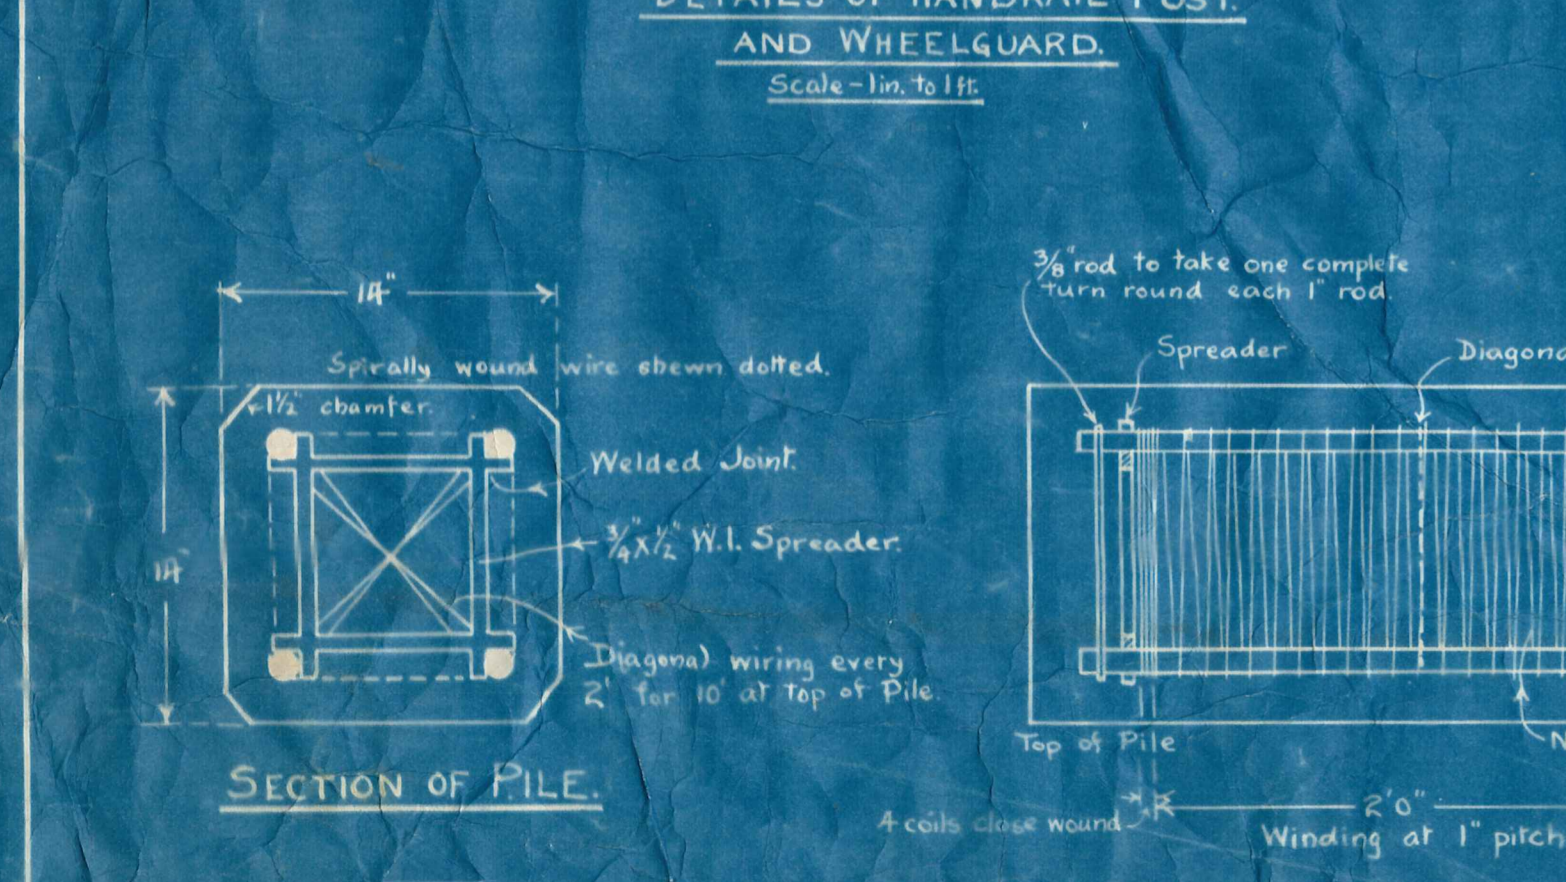 DETAILS OF HANDRAIL POST.
AND WHEELGUARD.
Scale-1in. to 1ft.
14"
Spirally wound wire shewn dotted.
1½" chamfer.
Welded Joint.
¾"x½" W.I. Spreader.
14"
Diagonal wiring every
2' for 10' at top of Pile.
SECTION OF PILE.
3/8" rod to take one complete
turn round each 1" rod.
Spreader
Diagona
Top of Pile
N
4 coils close wound
2'0"
Winding at 1" pitch